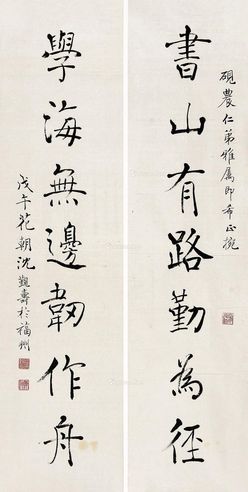 硯農仁弟雅属即希正捥
書山有路勤為径
學海無邊韌作舟
戊午花朝沈覲壽於福州